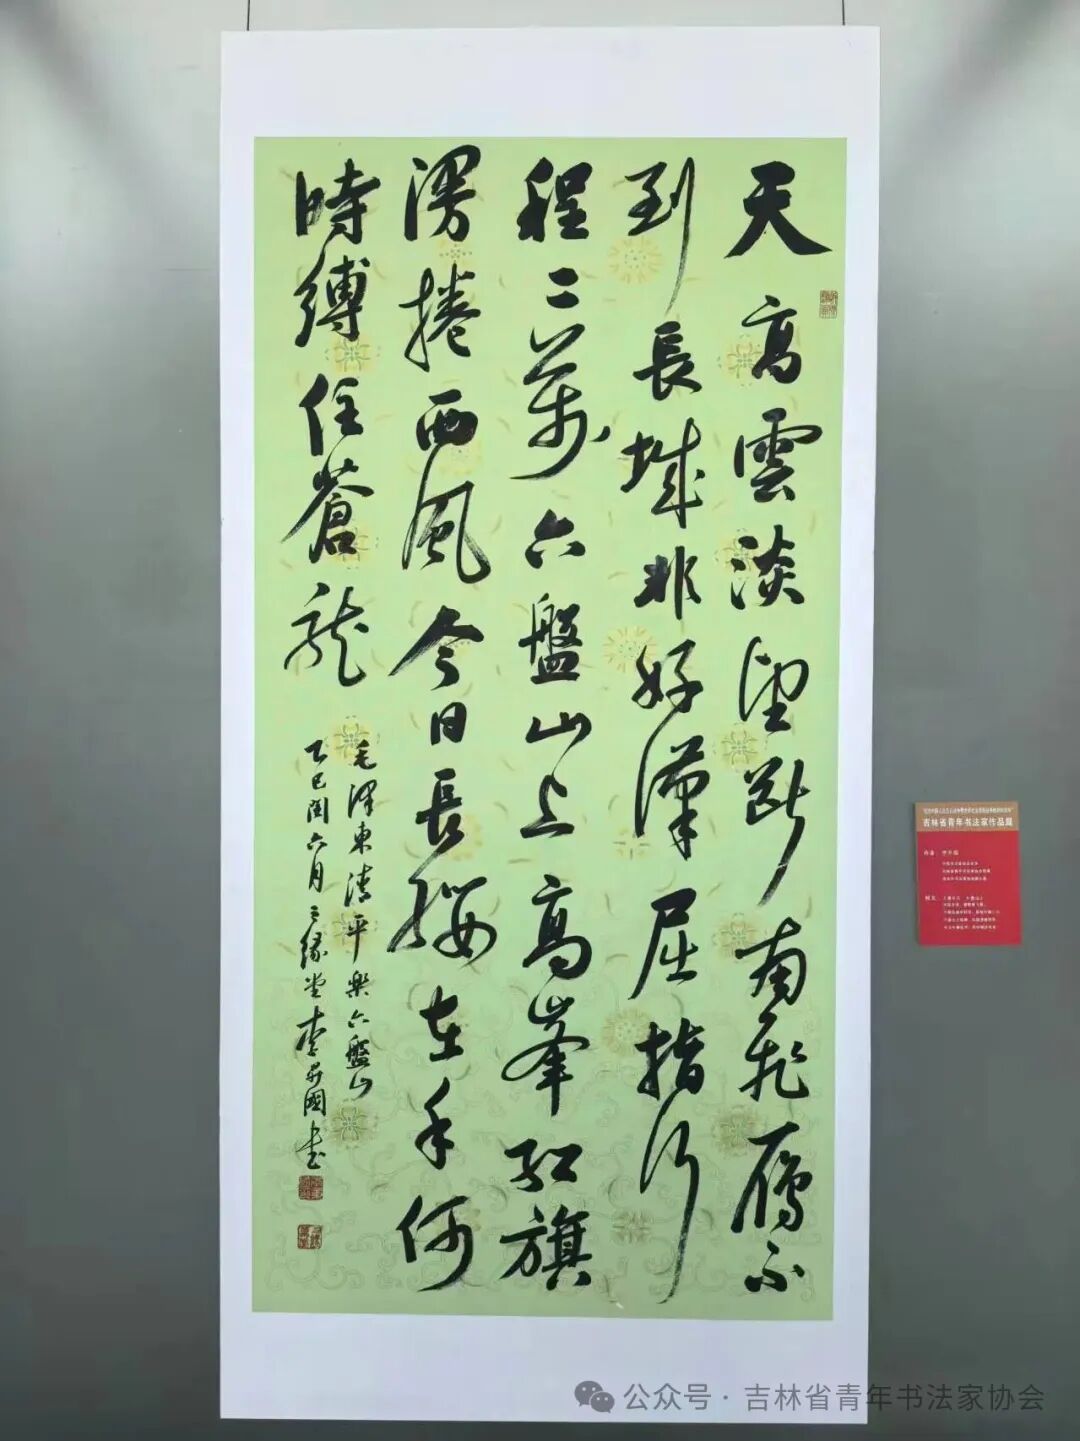 天高雲淡望斷南飛雁不
到長城非好漢屈指行
程二萬六盤山上高峯紅旗
漫捲西風今日長纓在手何
時縛住蒼龍
毛澤東清平樂六盤山
乙巳閏六月三緣堂李昇國书
吉林省青年书法家作品展
公众号·吉林省青年书法家协会